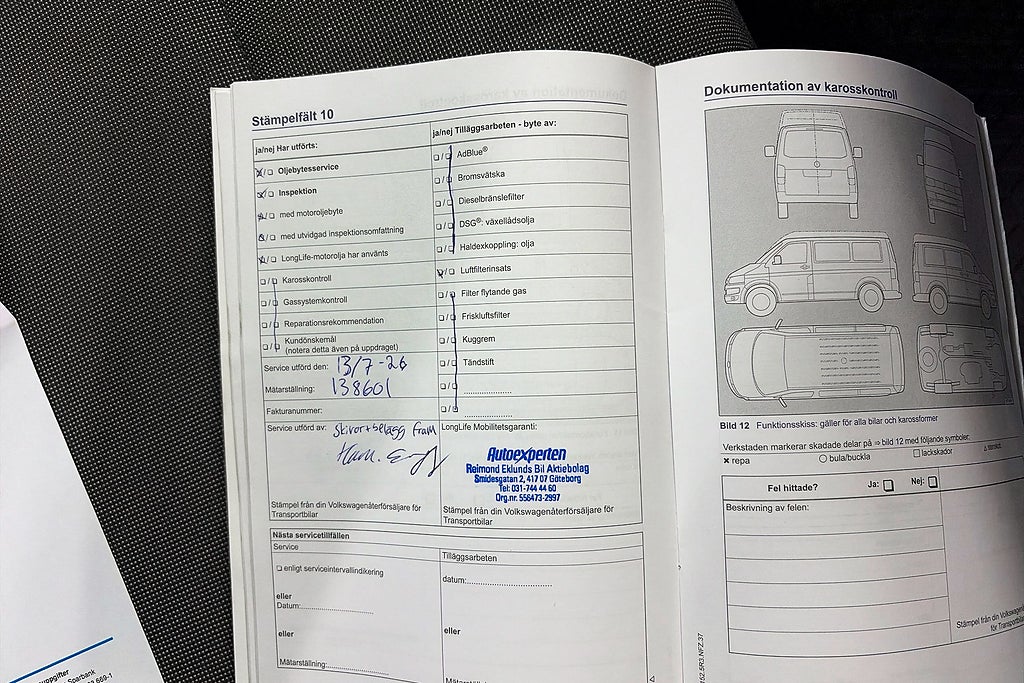 Stämpelfält 10
ja/nej Har utförts:
Oljebytesservice
Inspektion
med motoroljebyte
med utvidgad inspektionsomfattning
LongLife-motorolja har använts
Karosskontroll
Gassystemkontroll
Reparationsrekommendation
Kundönskemål
(notera detta även på uppdraget)
Service utförd den: 13/7-26
Mätarställning: 138601
Fakturanummer:
Service utförd av: Skivor+belägg fram
Stämpel från din Volkswagenåterförsäljare för
Transportbilar
ja/nej Tilläggsarbeten - byte av:
AdBlue®
Bromsvätska
Dieselbränslefilter
DSG®: växellådsolja
Haldexkoppling: olja
Luftfilterinsats
Filter flytande gas
Friskluftsfilter
Kuggrem
Tändstift
LongLife Mobilitetsgaranti:
Autoexperten
Reimond Eklunds Bil Aktiebolag
Smidesgatan 2, 417 07 Göteborg
Tel: 031-744 44 60
Org.nr. 556473-2997
Stämpel från din Volkswagenåterförsäljare för
Transportbilar
Nästa servicetillfällen
Service
enligt serviceintervallindikering
eller
Datum:
eller
Mätarställning:
Tilläggsarbeten
datum:
eller
Dokumentation av karosskontroll
Bild 12 Funktionsskiss: gäller för alla bilar och karossformer
Verkstaden markerar skadade delar på ⇒ bild 12 med följande symboler:
× repa
bula/buckla
lackskador
Fel hittade? Ja: Nej:
Beskrivning av felen:
Stämpel från din Volkswagen
för Transportbilar
152.5R3.NFZ.37
uppgifter
Sparbank